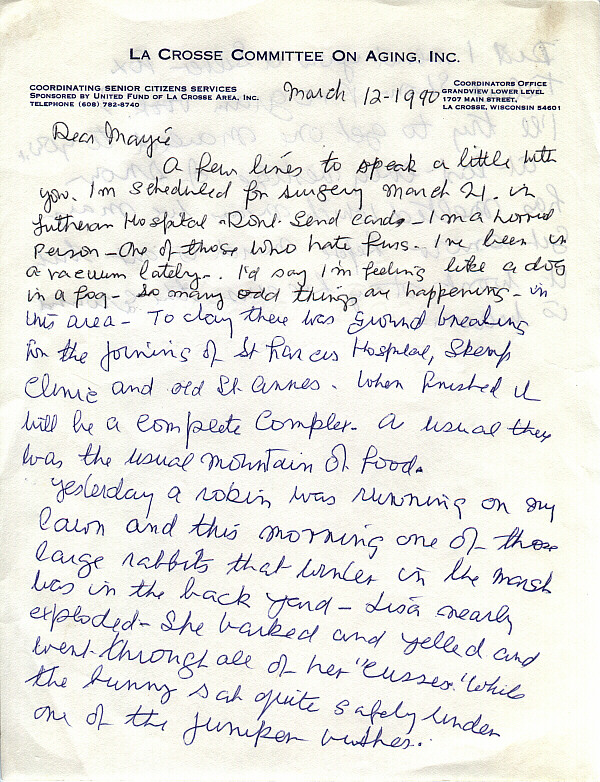 LA CROSSE COMMITTEE ON AGING, INC.
COORDINATING SENIOR CITIZENS SERVICES
SPONSORED BY UNITED FUND OF LA CROSSE AREA, INC.
TELEPHONE (608) 782-8740
March 12-1990
COORDINATORS OFFICE
GRANDVIEW LOWER LEVEL
1707 MAIN STREET,
LA CROSSE, WISCONSIN 54601
Dear Margie
A few lines to speak a little with
you. I'm scheduled for surgery March 21. in
Lutheran Hospital - Dont Send cards - I'm a horrid
Person - One of those who hate fuss. I've been in
a vacuum lately - I'd say I'm feeling like a dog
in a fog - So many odd things are happening - in
this area - To day there was ground breaking
for the joining of St Francis Hospital, Skemp
Clinic and old St. Annes. When finished it
will be a complete Complex. A usual there
was the usual mountain of food.
Yesterday a robin was running on my
lawn and this morning one of those
large rabbits that winter in the marsh
was in the back yard - Lisa nearly
exploded - She barked and yelled and
went through all of her "Cusses" While
the bunny sat quite safely under
one of the juniper bushes.